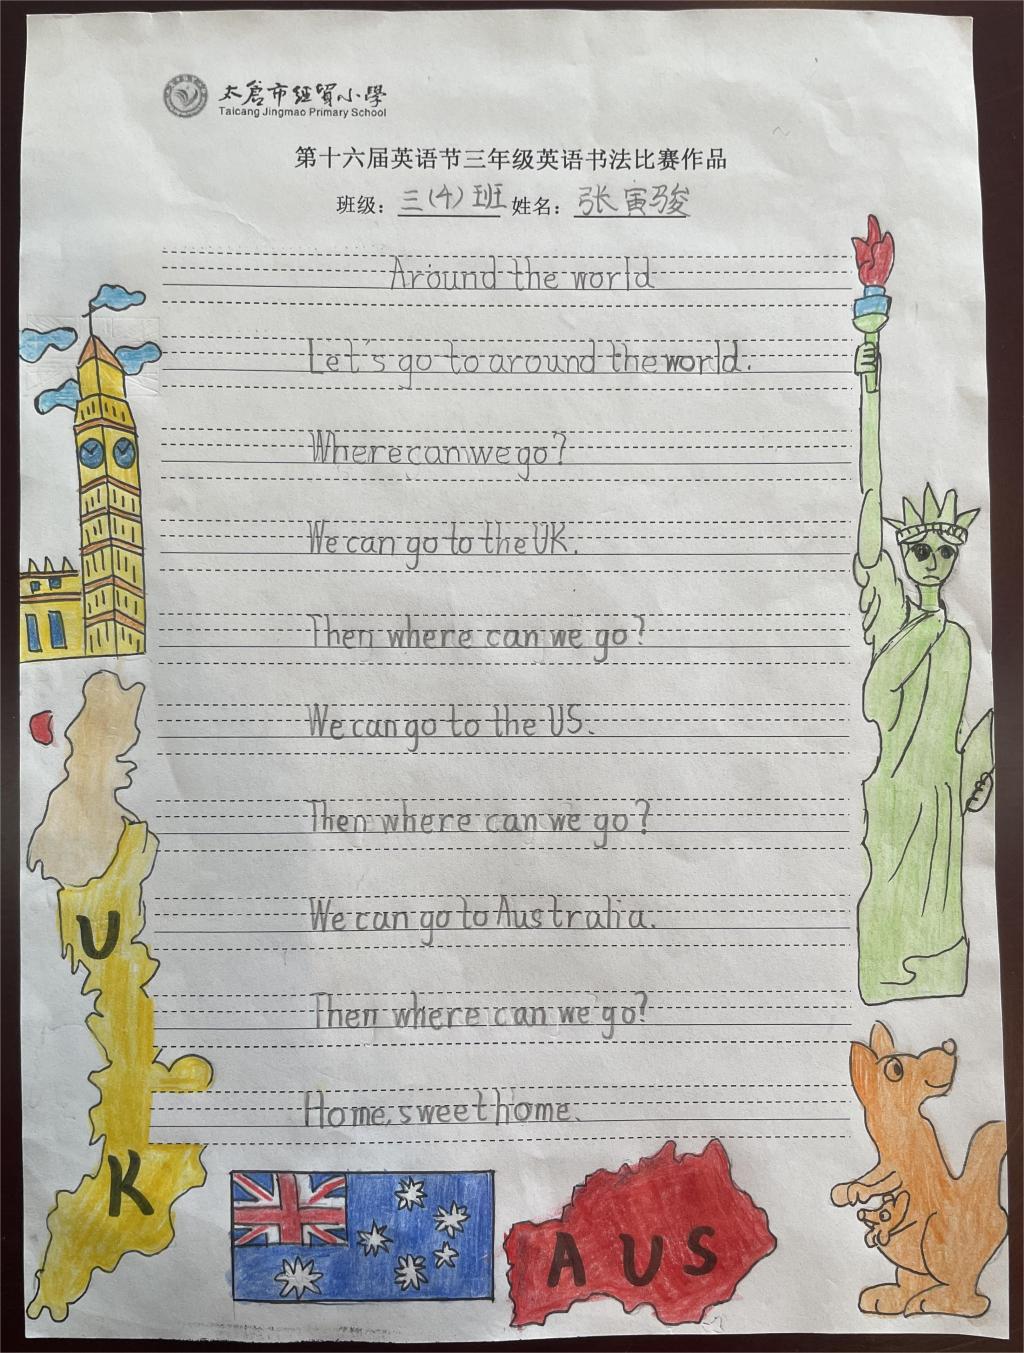 太倉市經貿小學
Taicang Jingmao Primary School
第十六届英语节三年级英语书法比赛作品
班级：三(4)班 姓名：张寅骏
Around the world
Let's go to around the world.
Where can we go?
We can go to the UK.
Then where can we go?
We can go to the US.
Then where can we go?
We can go to Australia.
Then where can we go?
Home, sweet home.
U
K
AUS